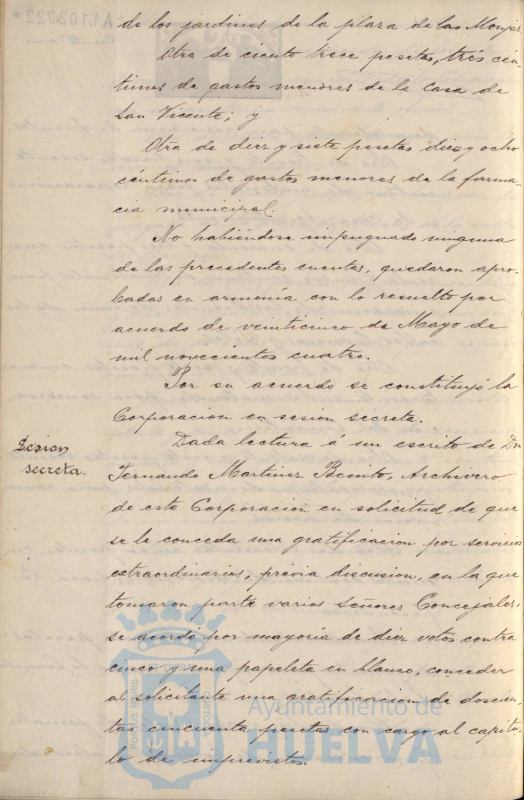 de los jardines de la plaza de las Monjas.
Otra de ciento trece pesetas, trés cén-
timos de gastos menores de la Casa de
San Vicente; y
Otra de diez y siete pesetas diez y ocho
céntimos de gastos menores de la farma-
cia municipal.
No habiéndose impugnado ninguna
de las precedentes cuentas, quedaron apro-
badas en armonía con lo resuelto por
acuerdo de veinticinco de Mayo de
mil novecientos cuatro.
Por su acuerdo se constituyó la
Corporacion en sesion secreta.
Sesion
secreta.
Dada lectura á un escrito de Dn
Fernando Martinez Benito, Archivero
de esta Corporacion en solicitud de que
se le conceda una gratificacion por servicios
extraordinarios, previa discusion, en la que
tomaron parte varios Señores Concejales,
se acordó por mayoría de diez votos contra
cinco y una papeleta en blanco, conceder
al solicitante una gratificacion de doscien-
tas cincuenta pesetas con cargo al capítu-
lo de imprevistos.
Ayuntamiento de
HUELVA